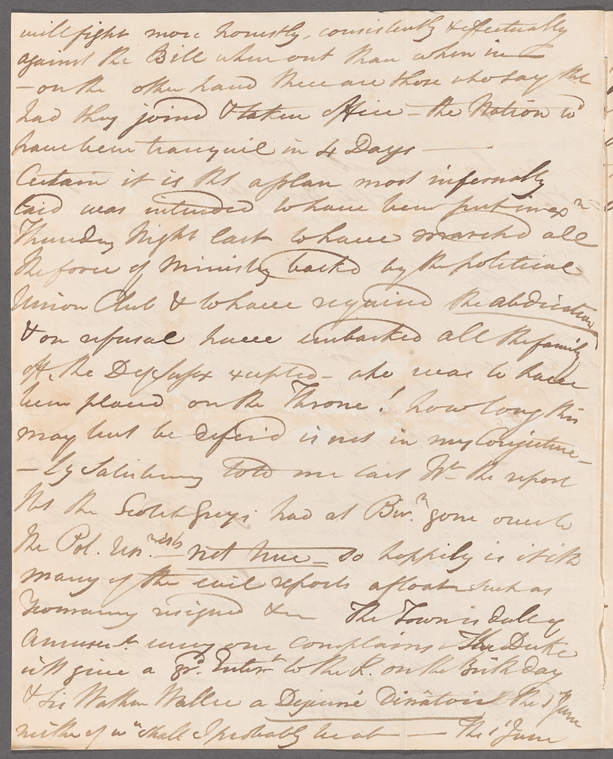 will fight more honestly, consistently & effectually
against the Bill when out than when in
– on the other hand there are those who say that
had they joined & taken office – the Nation wd
have been tranquil in 4 Days –
Certain it is tht a plan most infernally
laid was intended to have been put in exn
Thursday Night last to have marched all
the force of Ministry backd by the political
Union Club & to have required the abdication
& on refusal have embarked all the family
off, the Dss Sussex excepted – she was to have
been placed on the Throne! how long this
may but be deferd is not in my Conjecture –
– Ly Salisbury told me last Nt the report
tht the Scotch Greys had at Birm gone over to
the Pol. Unists – not true – so happily is it with
many of the evil reports afloat such as
Yeomanry resigned &c The Town is duley
amused every one complains – The Duke
will give a grd Entert to the K. on the Birth day
& Sir Wathen Waller a Dejeuné Dinatoire the 1st June
neither of wh shall I probably be at – The 1st June